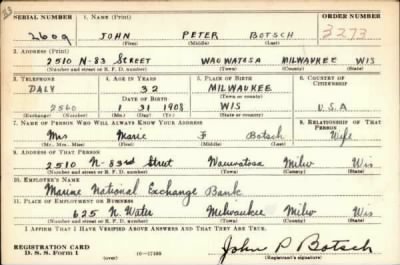 SERIAL NUMBER 1. NAME (Print) ORDER NUMBER
2609 JOHN PETER BOTSCH 3273
(First) (Middle) (Last)
2. ADDRESS (Print)
2510 N-83 STREET WAUWATOSA MILWAUKEE WIS
(Number and street or R. F. D. number) (Town) (County) (State)
3. TELEPHONE 4. AGE IN YEARS 5. PLACE OF BIRTH 6. COUNTRY OF CITIZENSHIP
DALY 32 MILWAUKEE
(Exchange) DATE OF BIRTH (Town or county)
2560 1 31 1908 WIS U.S.A
(Number) (Mo.) (Day) (Yr.) (State or country)
7. NAME OF PERSON WHO WILL ALWAYS KNOW YOUR ADDRESS 8. RELATIONSHIP OF THAT PERSON
Mrs Marie F Botsch Wife
(Mr., Mrs., Miss) (First) (Middle) (Last)
9. ADDRESS OF THAT PERSON
2510 N-83rd Street Wauwatosa Milw Wis
(Number and street or R. F. D. number) (Town) (County) (State)
10. EMPLOYER'S NAME
Marine National Exchange Bank
11. PLACE OF EMPLOYMENT OR BUSINESS
625 N. Water Milwaukee Milw Wis
(Number and street or R. F. D. number) (Town) (County) (State)
I AFFIRM THAT I HAVE VERIFIED ABOVE ANSWERS AND THAT THEY ARE TRUE.
REGISTRATION CARD John P Botsch
D. S. S. Form 1 (over) 16-17105 (Registrant's signature)